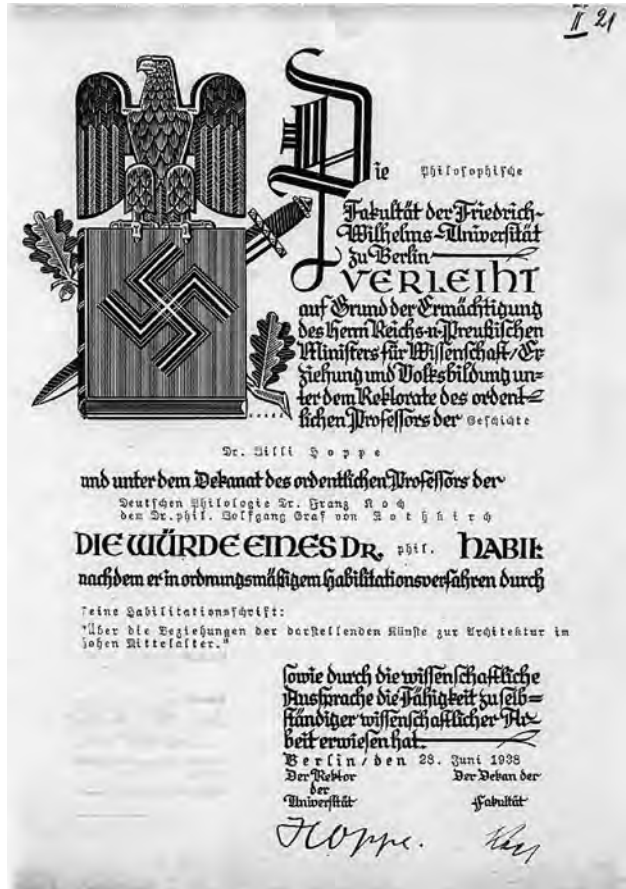 II 21
Die Philosophische
Fakultät der Friedrich-
Wilhelms-Universität
zu Berlin
VERLEIHT
auf Grund der Ermächtigung
des Herrn Reichs-u-Preußischen
Ministers für Wissenschaft/Er-
ziehung und Volksbildung un-
ter dem Rektorate des ordent-
lichen Professors der Geschichte
Dr. Willi Hoppe
und unter dem Dekanat des ordentlichen Professors der
Deutschen Philologie Dr. Franz Koch
dem Dr.phil. Wolfgang Graf von Rothkirch
DIE WÜRDE EINES DR. phil. HABIL
nachdem er in ordnungsmäßigem Habilitationsverfahren durch
seine Habilitationsschrift:
"Über die Beziehungen der darstellenden Künste zur Architektur im
hohen Mittelalter."
sowie durch die wissenschaftliche
Aussprache die Fähigkeit zu selb=
ständiger wissenschaftlicher Ar=
beit erwiesen hat.
Berlin/den 28. Juni 1938
Der Rektor Der Dekan der
der
Universität Fakultät
Hoppe. Koch